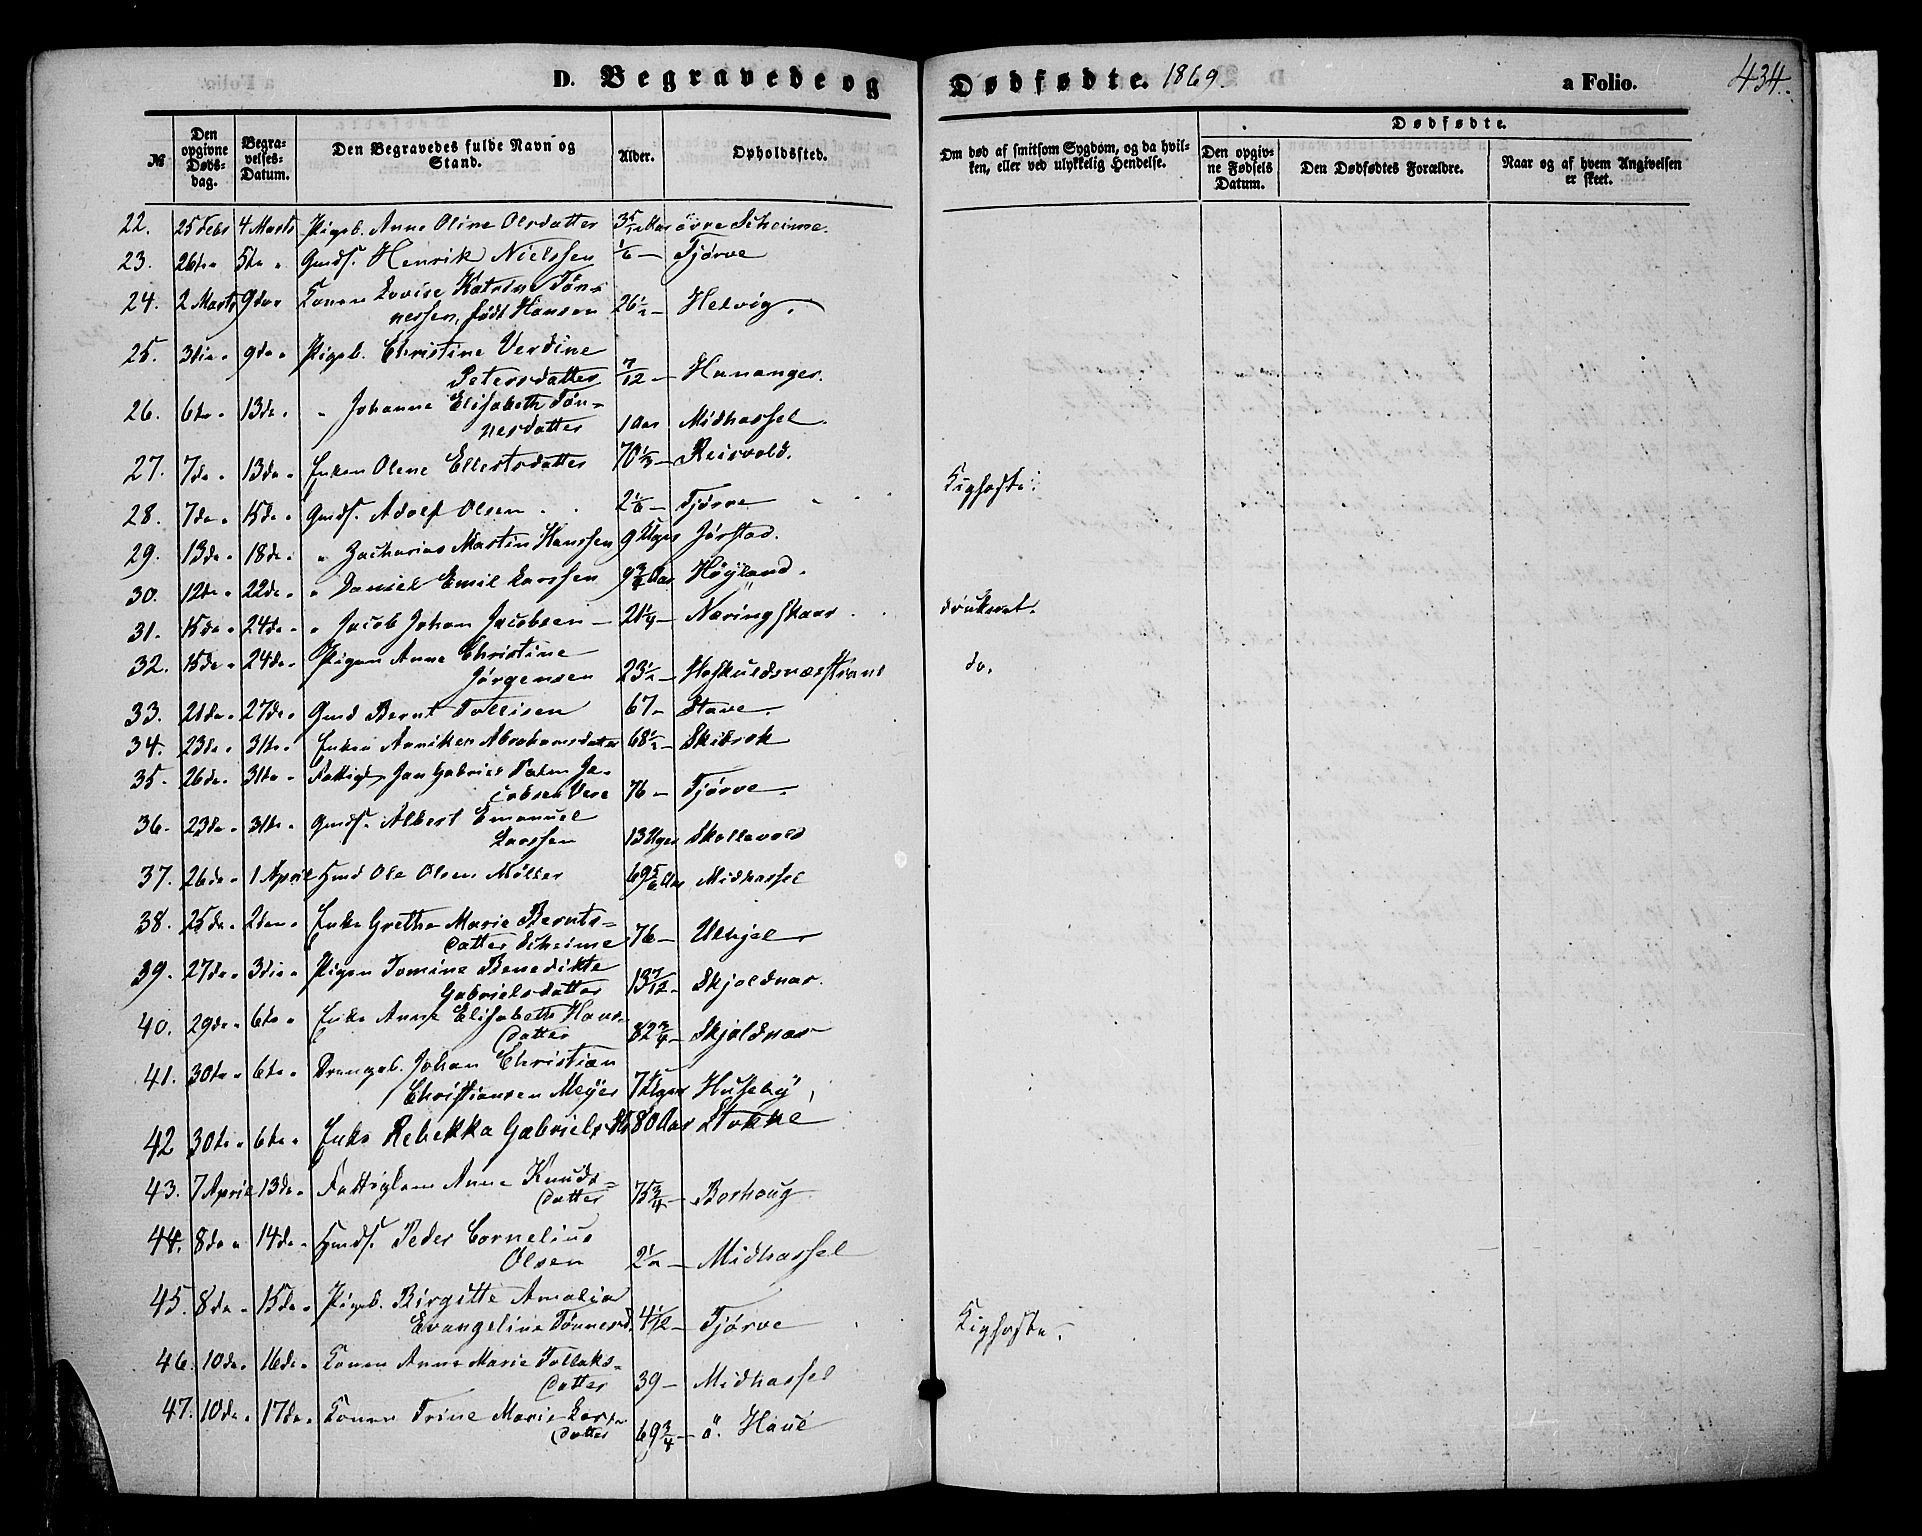 D. Begravede og Dødfødte. 1869. a Folio. 434.
№ Den opgivne Dødsdag. Begravelses-Datum. Den Begravedes fulde Navn og Stand. Alder. Opholdssted. Om død af smitsom Sygdom, og da hvilken, eller ved ulykkelig Hendelse. Dødfødte. Den opgivne Fødsels Datum. Den Dødfødtes Forældre. Naar og af hvem Angivelsen er skeet.
22. 25 Febr 4 Marts Pigeb. Anne Oline Olsdatter øvre Scheime.
23. 26de " 5te " Gmds. Henrik Nielssen 1/6 — Tjørve
24. 2 Marts 9de " Konen Lovise Katrine Tøn-
nessen, født Hansen 26 1/2 — Helvig.
25. 3die " 9de " Pigeb. Christine Verdine
Petersdatter 7/12 — Hananger.
26. 6te " 13de " " Johanne Elisabeth Tøn-
nesdatter 1 Aar Midhassel.
27. 7de " 13de " Enken Olene Ellertsdatter 70 1/3 — Reisvold.
28. 7de " 15de " Gmds. Adolf Olsen 2 1/6 — Tjørve Kighoste.
29. 13de " 18de " " Zacharias Martin Hanssen 9 Uger Jørstad.
30. 12de " 22de " " Daniel Emil Larssen 9 3/4 Aar Høyland.
31. 15de " 24de " " Jacob Johan Jacobsen — 21 1/4 — Næringskaar druknet.
32. 15de " 24de " Pigen Anne Christine
Jørgensen 23 1/2 — Høskuldsnæsstrand do.
33. 21de " 27de " Gmd Bernt Tollisen 67 — Stave.
34. 23de " 31te " Enken Anniken Abrahamsdatter 68 1/2 — Skibrok
35. 26de " 31te " Fattigl. Jan Gabriel Palm Ja-
cobsen Vere 76 — Tjørve.
36. 23de " 31te " Gmds. Albert Emanuel
Larssen 13 Uger Skollevold
37. 26de " 1 April Hmd Ole Olsen Møller 69 5/6 Aar Midhassel
38. 25de " 2den " Enke Grethe Marie Bernts-
datter Scheime 76 — Ulhjel
39. 27de " 3die " Pigen Tomine Benedikte
Gabrielsdatter 13 7/12 — Skjoldnæs.
40. 29de " 6te " Enke Anne Elisabeth Hans-
datter 82 3/4 — Skjoldnæs
41. 30te " 6te " Drengeb. Johan Christian
Christiansen Meyer 7 1/2 Uger Huseby
42 30te " 6te " Enke Rebekka Gabrielsdtr 80 Aar Stokke
43. 7 April 13de " Fattiglem Anne Knuds-
datter 75 3/4 — Borhoug
44. 8de " 14de " Hmds. Peder Cornelius
Olsen 2 1/2 — Midhassel
45. 8de " 15de " Pigeb. Birgitte Amalia
Evangeline Tønnesd. 4 1/12 — Tjørve Kighoste.
46. 10de " 16de " Konen Anne Marie Tollaks-
datter 39 — Midhassel
47. 10de " 17de " Konen Trine Marie Lars-
datter 69 3/4 — ö. Haue